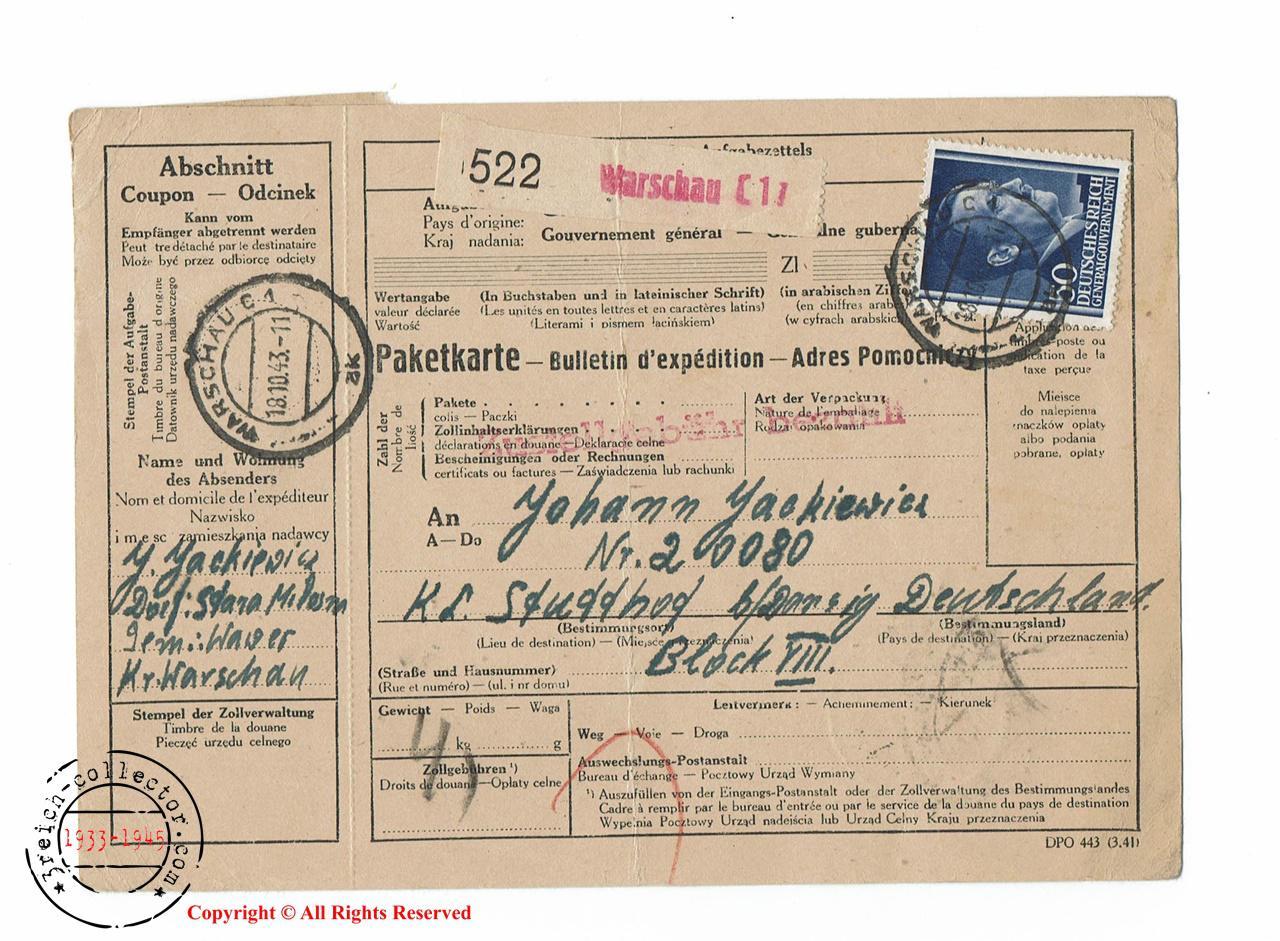 Abschnitt
Coupon — Odcinek
Kann vom
Empfänger abgetrennt werden
Peut tre détaché par le destinataire
Może być przez odbiorcę odcięty
Stempel der Aufgabe-
Postanstalt
Timbre du bureau d'origine
Datownik urzędu nadawczego
WARSCHAU C 1
18.10.43.-11
Name und Wohnung
des Absenders
Nom et domicile de l'expéditeur
Nazwisko
i m e sc zamieszkania nadawcy
J. Jackiewicz
Dorf: Stara Miłosna
Gem: Wawer
Kr. Warschau
Stempel der Zollverwaltung
Timbre de la douane
Pieczęć urzędu celnego
522 Warschau C 1
Aufgabezettels
Pays d'origine:
Kraj nadania:
Gouvernement général —
Zł
Wertangabe
valeur déclarée
Wartość
(In Buchstaben und in lateinischer Schrift)
(Les unités en toutes lettres et en caractères latins)
(Literami i pismem łacińskiem)
(in arabischen
(en chiffres
(w cyfrach
50
DEUTSCHES REICH
GENERALGOUVERNEMENT
Paketkarte — Bulletin d'expédition — Adres Pomocniczy
timbres-poste ou
indication de la
taxe perçue
Miejsce
do nalepienia
znaczków opłaty
albo podania
pobrane, opłaty
Zahl der
Nombre de
Ilość
Pakete
colis — Paczki
Zollinhaltserklärungen
déclarations en douane — Deklaracje celne
Bescheinigungen oder Rechnungen
certificats ou factures — Zaświadczenia lub rachunki
Art der Verpackung
Nature de l'emballage
Rodzaj opakowania
Zustellgebühr bezahlt
An Johann Jackiewicz
A — Do Nr. 2 0080
KL. Studdhof b/Danzig Deutschland.
(Bestimmungsort)
(Lieu de destination) — (Miejsce przeznaczenia)
(Bestimmungsland)
(Pays de destination) — (Kraj przeznaczenia)
Block VIII.
(Straße und Hausnummer)
(Rue et numéro) — (ul. i nr domu)
Gewicht — Poids — Waga
kg g
Zollgebühren ¹)
Droits de douane — Opłaty celne
Leitvermerk: — Acheminement: — Kierunek
Weg — Voie — Droga
Auswechslungs-Postanstalt
Bureau d'échange — Pocztowy Urząd Wymiany
¹) Auszufüllen von der Eingangs-Postanstalt oder der Zollverwaltung des Bestimmungslandes
Cadre à remplir par le bureau d'entrée ou par le service de la douane du pays de destination
Wypełnia Pocztowy Urząd nadejścia lub Urząd Celny Kraju przeznaczenia
DPO 443 (3.41)
3reich-collector.com
1933-1945
Copyright © All Rights Reserved